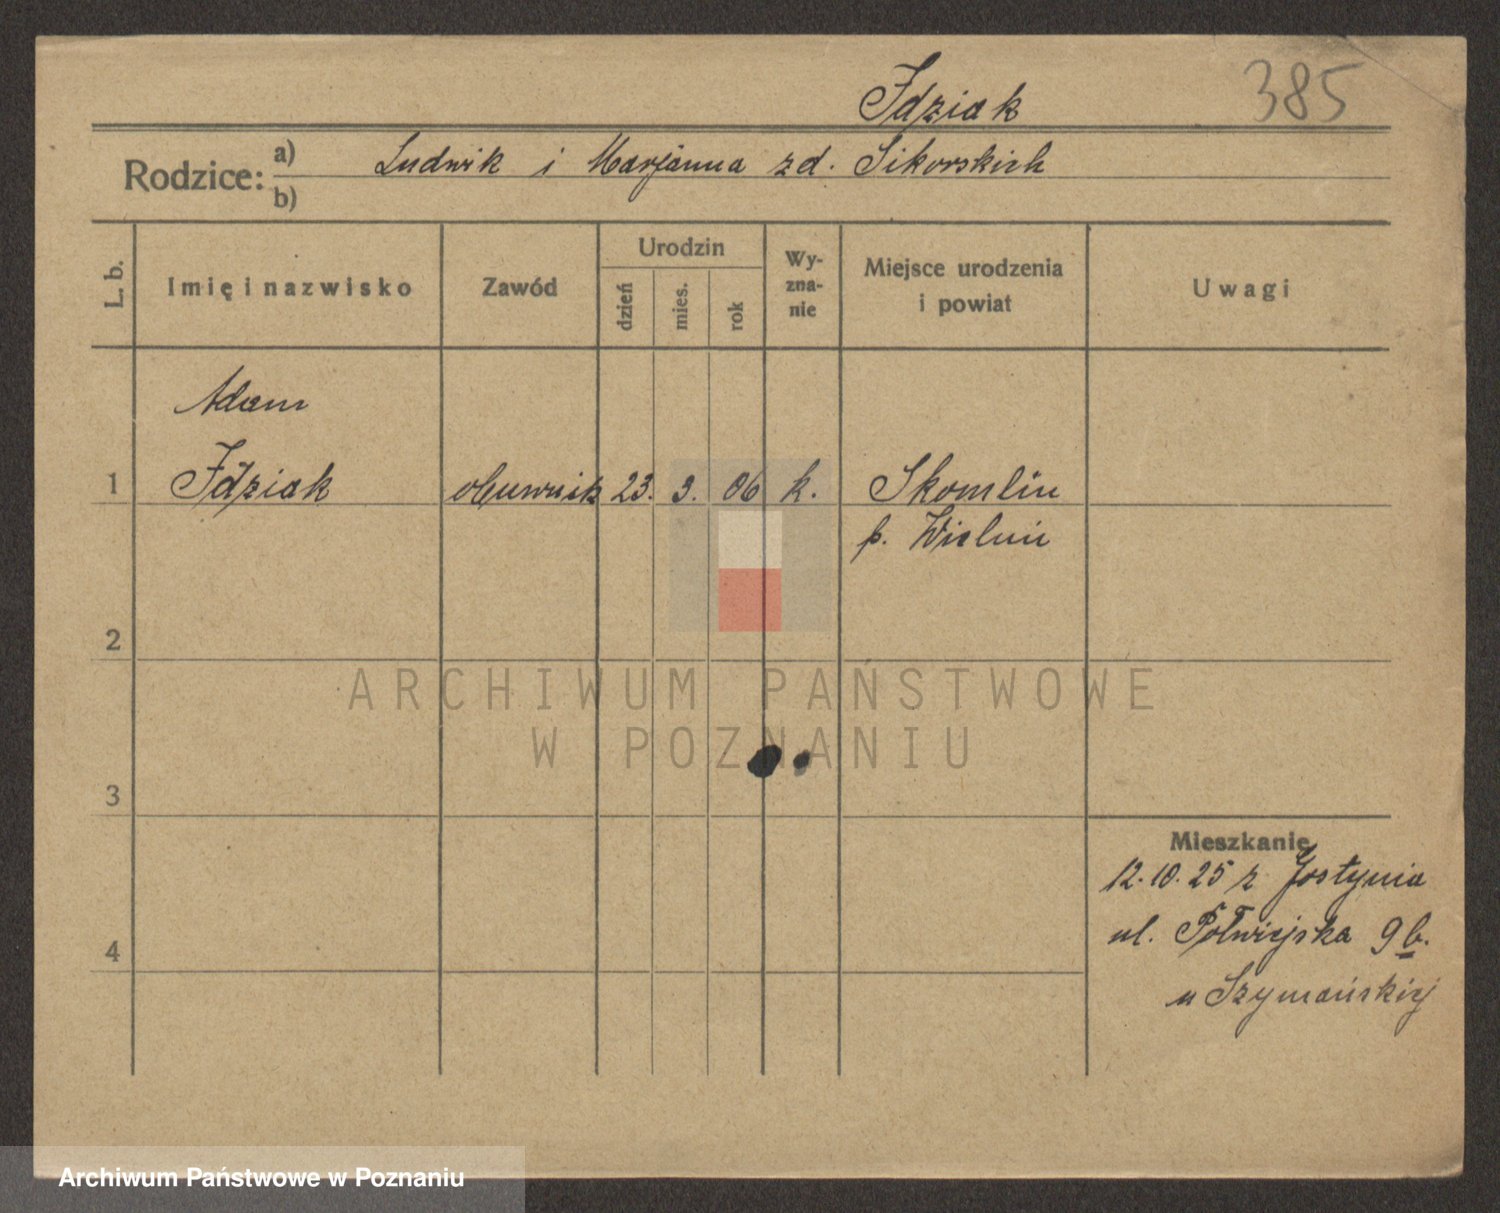 Idziak
385
Rodzice: a) Ludwik i Marjanna zd. Sikorskich
b)
L. b.
Imię i nazwisko
Zawód
Urodzin
dzień
mies.
rok
Wy-
zna-
nie
Miejsce urodzenia
i powiat
Uwagi
Adam
1 Idziak obuwnik 23. 9. 06 k. Skomlin
p. Wieluń
2
ARCHIWUM PAŃSTWOWE
W POZNANIU
3
Mieszkanie
12.10.25 z Gostynia
ul. Półwiejska 9 b.
4
u Szymańskiej
Archiwum Państwowe w Poznaniu